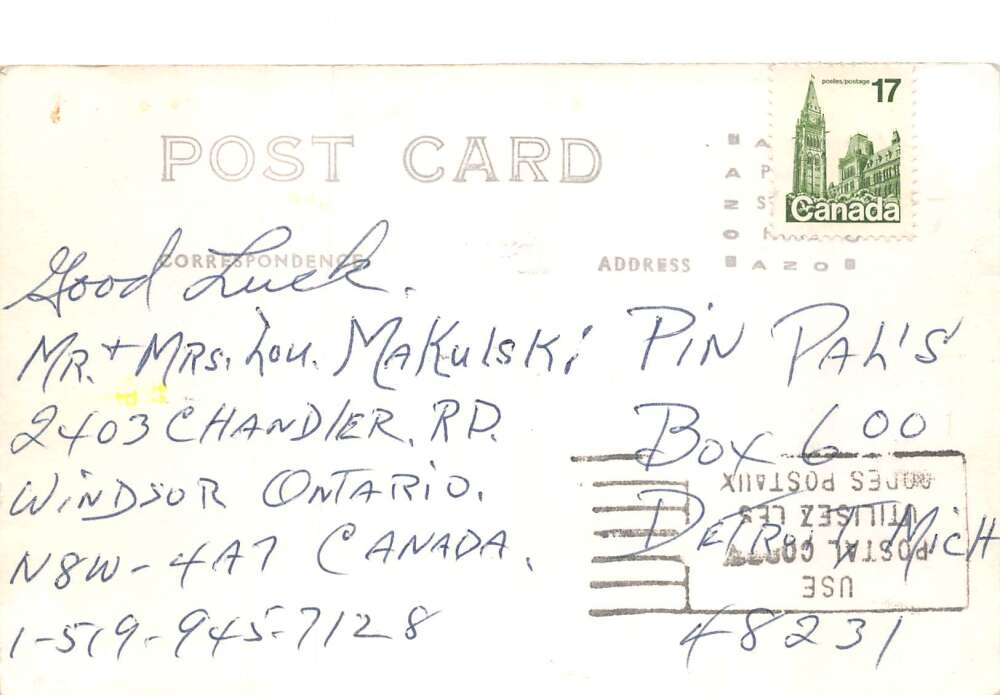 postes/postage 17
Canada
POST CARD
CORRESPONDENCE
ADDRESS
AZO
Good Luck.
Mr. + Mrs. Lou. Makulski
2403 CHANDLER. RD.
WINDSOR ONTARIO.
N8W-4A7 CANADA.
1-519-945-7128
Pin Pal's
Box 600
Detroit Mich
48231
USE
POSTAL CODES
UTILISEZ LES
CODES POSTAUX